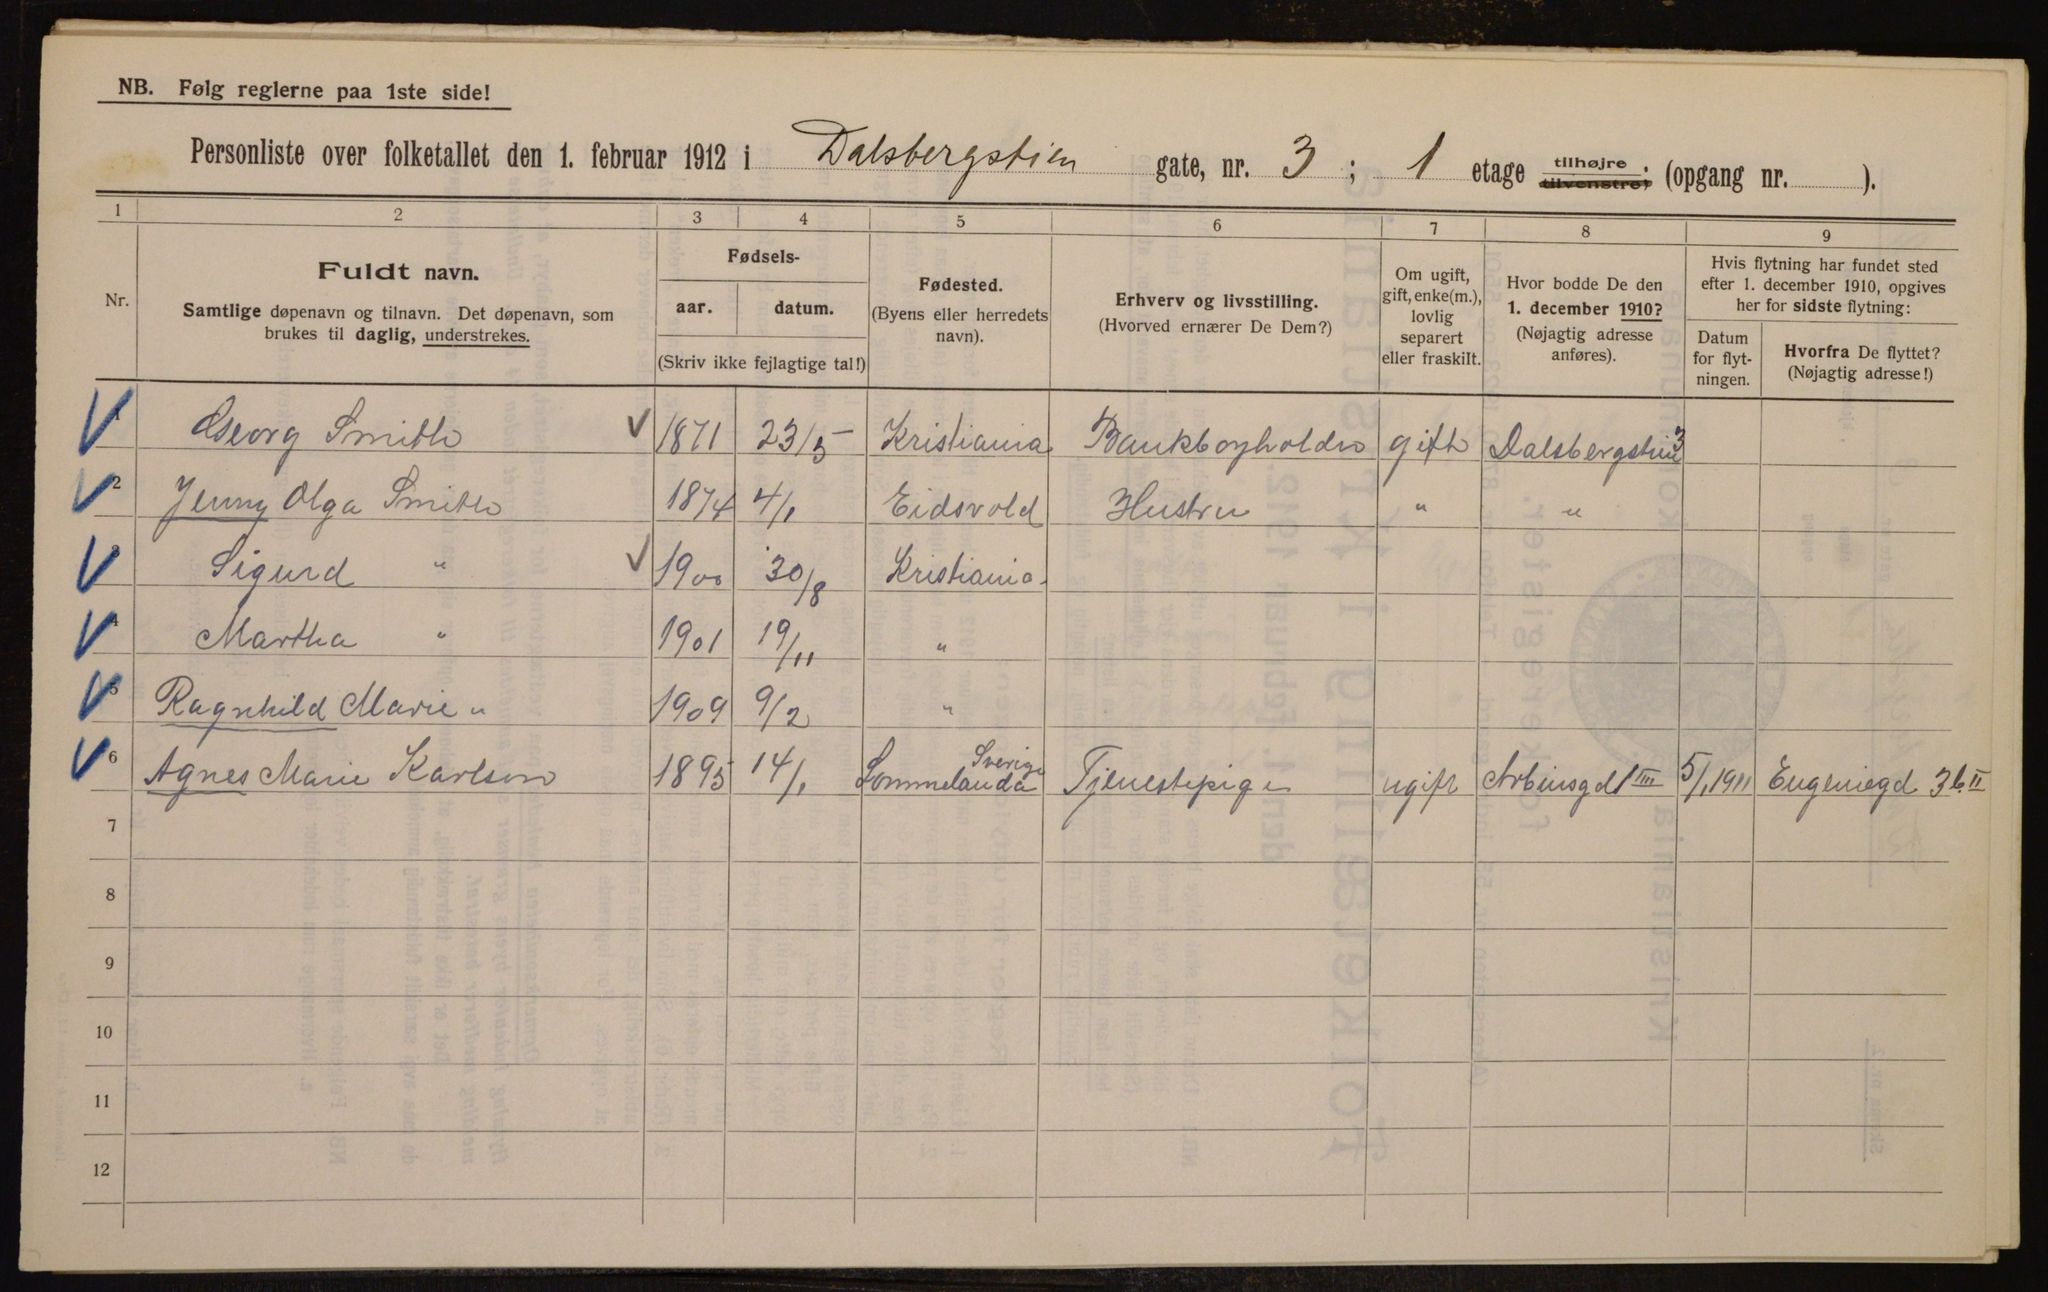 NB. Følg reglerne paa 1ste side!
Personliste over folketallet den 1. februar 1912 i Dalsbergstien gate, nr. 3 ; 1 etage tilhøjre tilvenstre; (opgang nr. ).
1 2 3 4 5 6 7 8 9
Nr.
Fuldt navn.
Samtlige døpenavn og tilnavn. Det døpenavn, som
brukes til daglig, understrekes.
Fødsels-
aar. datum.
(Skriv ikke fejlagtige tal!)
Fødested.
(Byens eller herredets
navn).
Erhverv og livsstilling.
(Hvorved ernærer De Dem?)
Om ugift,
gift, enke(m.),
lovlig
separert
eller fraskilt.
Hvor bodde De den
1. december 1910?
(Nøjagtig adresse
anføres).
Hvis flytning har fundet sted
efter 1. december 1910, opgives
her for sidste flytning:
Datum
for flyt-
ningen.
Hvorfra De flyttet?
(Nøjagtig adresse!)
1 Georg Smith 1871 23/5 Kristiania Bankbogholder gift Dalsbergstien 3
2 Jenny Olga Smith 1874 4/1 Eidsvold Hustru " "
3 Sigurd " 1900 30/8 Kristiania
4 Martha " 1901 19/11 "
5 Ragnhild Marie " 1909 9/2 "
6 Agnes Marie Karlson 1895 14/1 Sommelanda Sverige Tjenestepige ugift 5/1 1911 Eugeniegd 36 II
7
8
9
10
11
12